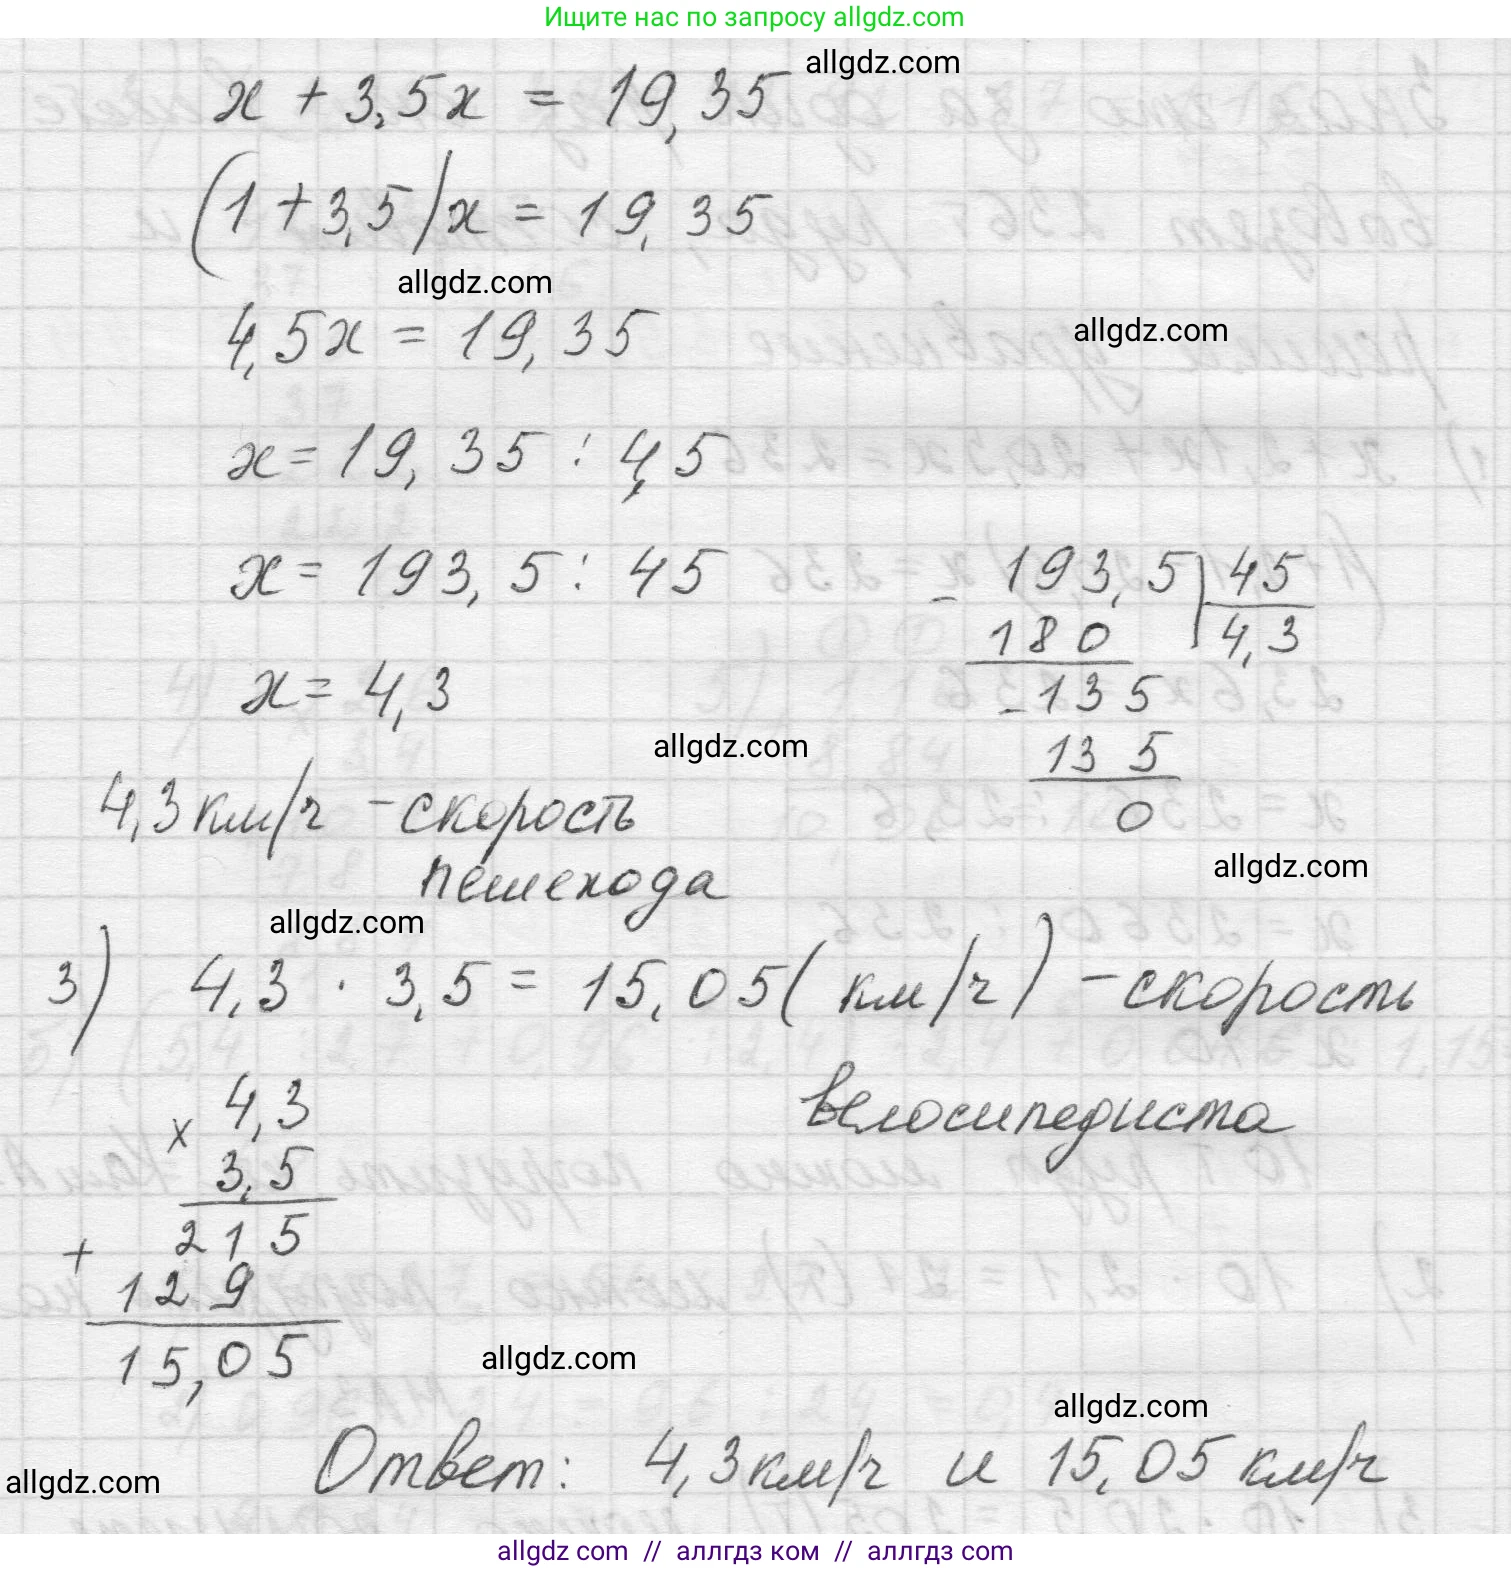 Ищите нас по запросу allgdz.com
allgdz.com
x + 3,5x = 19,35
(1+3,5)x = 19,35
allgdz.com
4,5x = 19,35
allgdz.com
x = 19,35 : 4,5
x = 193,5 : 45
- 193,5 | 45
180 4,3
x = 4,3
- 135
135
0
allgdz.com
4,3 км/ч - скорость
пешехода
allgdz.com
allgdz.com
3) 4,3 · 3,5 = 15,05 (км/ч) - скорость
велосипедиста
x 4,3
3,5
+ 215
129
15,05
allgdz.com
allgdz.com
Ответ: 4,3 км/ч и 15,05 км/ч
allgdz.com
allgdz com // аллгдз ком // allgdz com